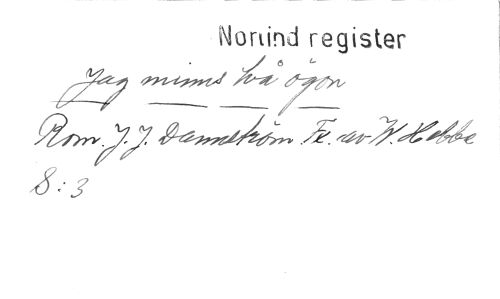 Norlind register
Jag minns två ögon
Rom. J. J. Dannström. Tx. av W. Hebbe
S: 3